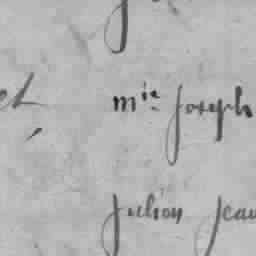 et mie joseph
julien jean